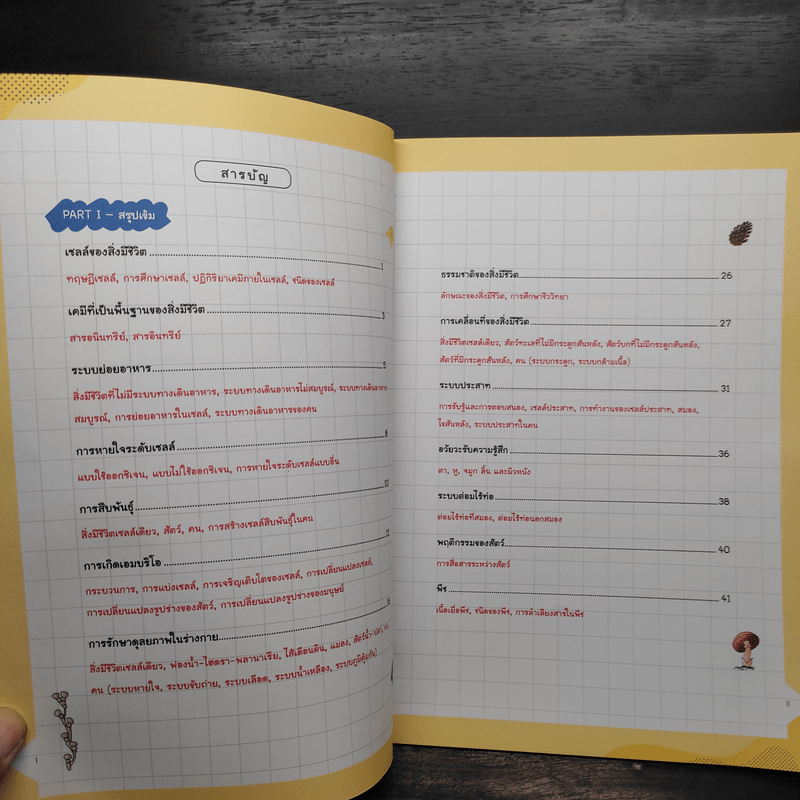 สารบัญ
PART I – สรุปเข้ม
เซลล์ของสิ่งมีชีวิต 1
ทฤษฎีเซลล์, การศึกษาเซลล์, ปฏิกิริยาเคมีภายในเซลล์, ชนิดของเซลล์
เคมีที่เป็นพื้นฐานของสิ่งมีชีวิต 3
สารอนินทรีย์, สารอินทรีย์
ระบบย่อยอาหาร 5
สิ่งมีชีวิตที่ไม่มีระบบทางเดินอาหาร, ระบบทางเดินอาหารไม่สมบูรณ์, ระบบทางเดินอาหาร
สมบูรณ์, การย่อยอาหารในเซลล์, ระบบทางเดินอาหารของคน
การหายใจระดับเซลล์ 8
แบบใช้ออกซิเจน, แบบไม่ใช้ออกซิเจน, การหายใจระดับเซลล์แบบอื่น
การสืบพันธุ์ 10
สิ่งมีชีวิตเซลล์เดียว, สัตว์, คน, การสร้างเซลล์สืบพันธุ์ในคน
การเกิดเอมบริโอ 12
กระบวนการ, การแบ่งเซลล์, การเจริญเติบโตของเซลล์, การเปลี่ยนแปลงเซลล์,
การเปลี่ยนแปลงรูปร่างของสัตว์, การเปลี่ยนแปลงรูปร่างของมนุษย์
การรักษาดุลยภาพในร่างกาย
สิ่งมีชีวิตเซลล์เดียว, ฟองน้ำ-ไฮดรา-พลานาเรีย, ไส้เดือนดิน, แมลง,
คน (ระบบหายใจ, ระบบขับถ่าย, ระบบเลือด, ระบบน้ำเหลือง, ระบบภูมิคุ้มกัน)
I
ธรรมชาติของสิ่งมีชีวิต 26
ลักษณะของสิ่งมีชีวิต, การศึกษาชีววิทยา
การเคลื่อนที่ของสิ่งมีชีวิต 27
สิ่งมีชีวิตเซลล์เดียว, สัตว์ทะเลที่ไม่มีกระดูกสันหลัง, สัตว์บกที่ไม่มีกระดูกสันหลัง,
สัตว์ที่มีกระดูกสันหลัง, คน (ระบบกระดูก, ระบบกล้ามเนื้อ)
ระบบประสาท 31
การรับรู้และการตอบสนอง, เซลล์ประสาท, การทำงานของเซลล์ประสาท, สมอง,
ไขสันหลัง, ระบบประสาทในคน
อวัยวะรับความรู้สึก 36
ตา, หู, จมูก ลิ้น และผิวหนัง
ระบบต่อมไร้ท่อ 38
ต่อมไร้ท่อที่สมอง, ต่อมไร้ท่อนอกสมอง
พฤติกรรมของสัตว์ 40
การสื่อสารระหว่างสัตว์
พืช 41
เนื้อเยื่อพืช, ชนิดของพืช, การลำเลียงสารในพืช
II